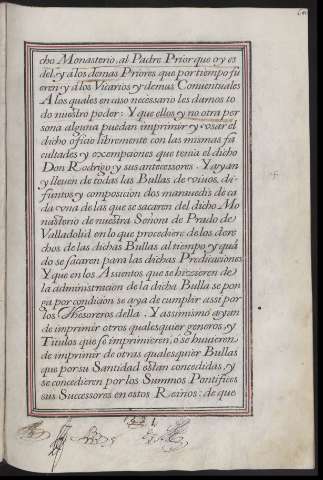 cho Monasterio, al Padre Prior que oy es
del, y a los demas Priores que por tiempo fu
eren y a los Vicarios y demas Conuentuales
A los quales en caso necessario les damos to
do nuestro poder: Y que ellos y no otra per
sona alguna puedan imprimir y vsar el
dicho oficio libremente con las mismas fa
cultades y excempciones que tenia el dicho
Don Rodrigo y sus antecessores. Y ayan
y lleuen de todas las Bullas de viuos, di-
funtos y composicion dos marauedis de ca
da vna de las que se sacaren del dicho Mo
nasterio de nuestra Señora de Prado de
Valladolid en lo que procediere de los dere
chos de las dichas Bullas al tiempo y quã
do se sacaren para las dichas Predicaciones
Y que en los Asientos que se hizieren de
la administracion de la dicha Bulla se pon
ga por condicion se aya de cumplir assi por
los Thesoreros della. Y assimismo ayan
de imprimir otros qualesquier generos y
Titulos que se imprimieren, o se huuieren
de imprimir de otras qualesquier Bullas
que por su Santidad estan concedidas, y
se concedieren por los Summos Pontifices
sus Successores en estos Reinos: de que